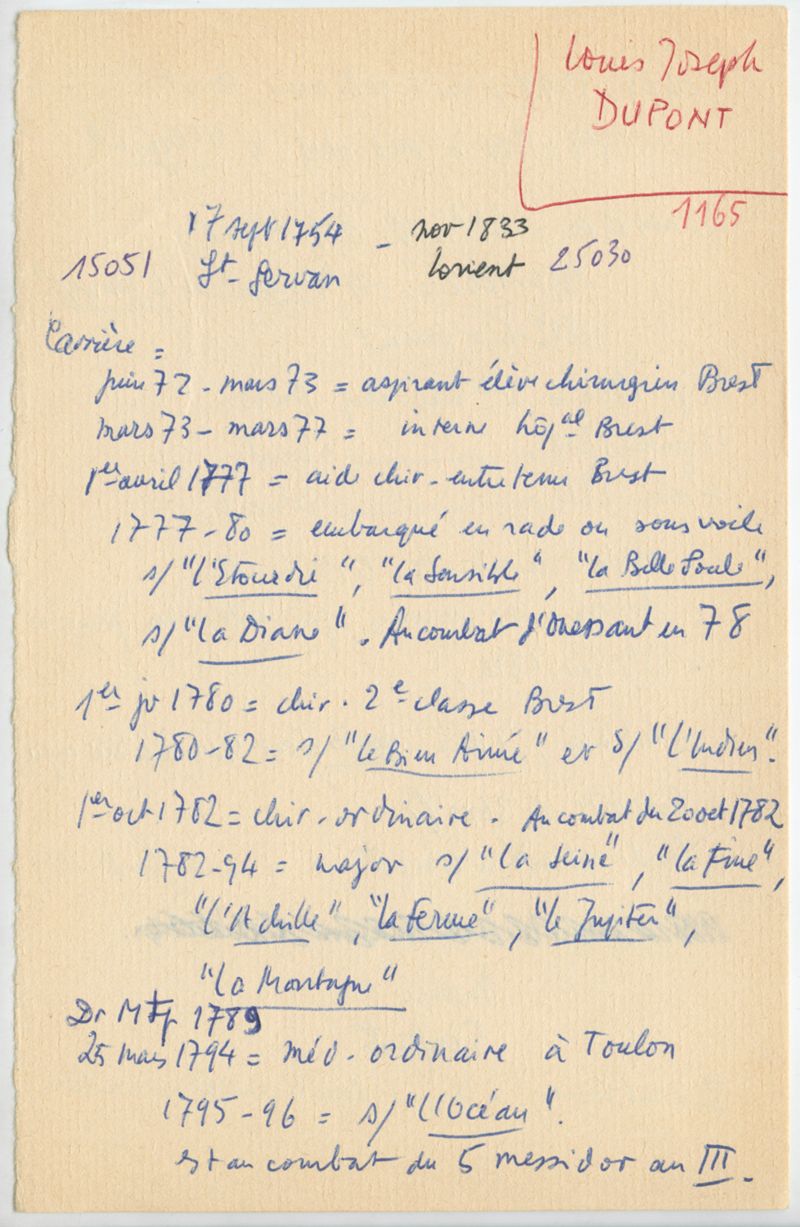 Louis Joseph
DUPONT
1165
17 sept 1754 - nov 1833
15051 St-Servan Lorient 25030
Carrière =
juin 72 - mars 73 = aspirant élève chirurgien Brest
mars 73 - mars 77 = interne hôpal Brest
1er avril 1777 = aide chir. entretenu Brest
1777-80 = embarqué en rade ou sous voile
s/ "l'Etourdie", "la Sensible", "la Belle Poule",
s/ "la Diane". Au combat d'Ouessant en 78
1er jv 1780 = chir. 2e classe Brest
1780-82 = s/ "le Bien Aimé" et s/ "l'Indien".
1er oct 1782 = chir. ordinaire. Au combat du 20 oct 1782
1782-94 = major s/ "la Seine", "la Fine",
"l'Achille", "la Ferme", "le Jupiter",
"la Montagne"
Dr 1789
25 mars 1794 = méd. ordinaire à Toulon
1795-96 = s/ "l'Océan".
est au combat du 5 messidor an III.